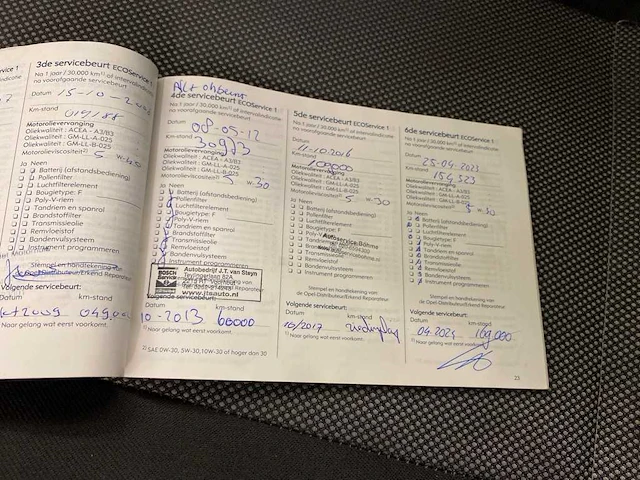 3de servicebeurt ECOService 1
Na 1 jaar / 30.000 km¹⁾ of intervalindicatie
na voorafgaande servicebeurt
Datum 15-10-
Km-stand
019188
Motorolievervanging
Oliekwaliteit: ACEA - A3/B3
Oliekwaliteit: GM-LL-A-025
Oliekwaliteit: GM-LL-B-025
Motorolieviscositeit²⁾ 5 W-40
Ja Neen
Batterij (afstandsbediening)
Pollenfilter
Luchtfilterelement
Bougietype: F
Poly-V-riem
Tandriem en spanrol
Brandstoffilter
Transmissieolie
Remvloeistof
Bandenvulsysteem
Instrument programmeren
Stempel en handtekening
Volgende servicebeurt:
Datum km-stand
2009
¹⁾ Naar gelang wat eerst voorkomt.
4de servicebeurt ECOService 1
Na 1 jaar / 30.000 km¹⁾ of intervalindicatie
na voorafgaande servicebeurt
Datum
08-05-12
Km-stand
30973
Motorolievervanging
Oliekwaliteit: ACEA - A3/B3
Oliekwaliteit: GM-LL-A-025
Oliekwaliteit: GM-LL-B-025
Motorolieviscositeit²⁾ 5 W-30
Ja Neen
Batterij (afstandsbediening)
Pollenfilter
Luchtfilterelement
Bougietype: F
Poly-V-riem
Tandriem en spanrol
Brandstoffilter
Transmissieolie
Remvloeistof
Bandenvulsysteem
Instrument programmeren
BOSCH
Service
Autobedrijf J.T. van Steyn
www.jtsauto.nl
Volgende servicebeurt:
Datum km-stand
10-2013 60000
¹⁾ Naar gelang wat eerst voorkomt.
²⁾ SAE 0W-30, 5W-30, 10W-30 of hoger dan 30
5de servicebeurt ECOService 1
Na 1 jaar / 30.000 km¹⁾ of intervalindicatie
na voorafgaande servicebeurt
Datum
11-10-2016
Km-stand
100000
Motorolievervanging
Oliekwaliteit: ACEA - A3/B3
Oliekwaliteit: GM-LL-A-025
Oliekwaliteit: GM-LL-B-025
Motorolieviscositeit²⁾ 5 W-30
Ja Neen
Batterij (afstandsbediening)
Pollenfilter
Luchtfilterelement
Bougietype: F
Poly-V-riem
Tandriem en spanrol
Brandstoffilter
Transmissieolie
Remvloeistof
Bandenvulsysteem
Instrument programmeren
Stempel en handtekening van
de Opel-Distributeur/Erkend Reparateur
Volgende servicebeurt:
Datum km-stand
10/2017
¹⁾ Naar gelang wat eerst voorkomt.
6de servicebeurt ECOService 1
Na 1 jaar / 30.000 km¹⁾ of intervalindicatie
na voorafgaande servicebeurt
Datum
25-04-2023
Km-stand
154523
Motorolievervanging
Oliekwaliteit: ACEA - A3/B3
Oliekwaliteit: GM-LL-A-025
Oliekwaliteit: GM-LL-B-025
Motorolieviscositeit²⁾ 5 W-30
Ja Neen
Batterij (afstandsbediening)
Pollenfilter
Luchtfilterelement
Bougietype: F
Poly-V-riem
Tandriem en spanrol
Brandstoffilter
Transmissieolie
Remvloeistof
Bandenvulsysteem
Instrument programmeren
Stempel en handtekening van
de Opel-Distributeur/Erkend Reparateur
Volgende servicebeurt:
Datum km-stand
04-2024 169.000
¹⁾ Naar gelang wat eerst voorkomt.
23